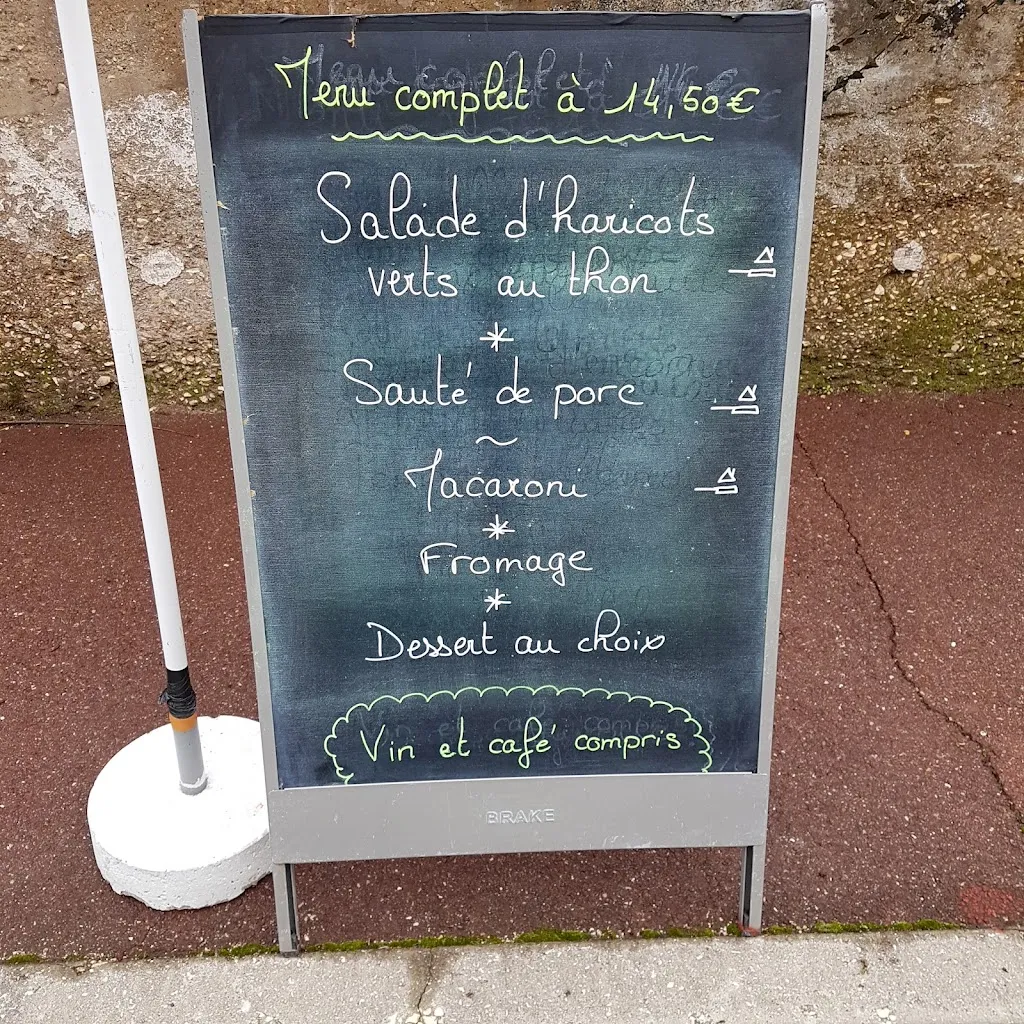 Menu complet à 14,50€
Salade d'haricots
verts au thon
*
Sauté de porc
~
Macaroni
*
Fromage
*
Dessert au choix
Vin et café compris
BRAKE